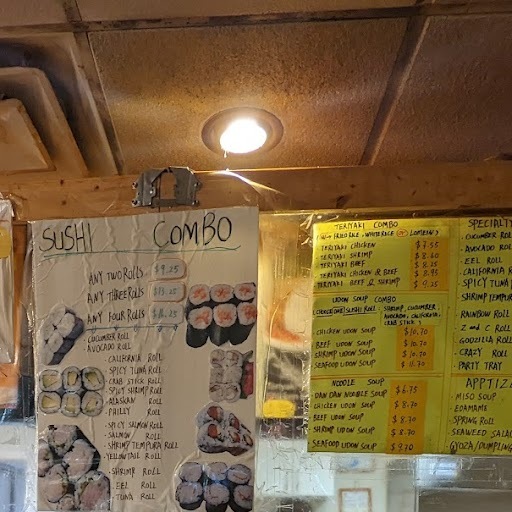 SUSHI COMBO
ANY TWO ROLLS $9.25
ANY THREE ROLLS $13.25
ANY FOUR ROLLS $16.25
CUCUMBER ROLL
AVOCADO ROLL
CALIFORNIA ROLL
SPICY TUNA ROLL
CRAB STICK ROLL
SPICY SHRIMP ROLL
ALASKAN ROLL
PHILLY ROLL
SPICY SALMON ROLL
SALMON ROLL
SHRIMP TEMPURA ROLL
YELLOWTAIL ROLL
SHRIMP ROLL
EEL ROLL
TUNA ROLL
TERIYAKI COMBO
FRIED RICE, WHITE RICE OR LOMEIN
TERIYAKI CHICKEN $7.55
TERIYAKI SHRIMP $8.60
TERIYAKI BEEF $8.25
TERIYAKI CHICKEN & BEEF $8.95
TERIYAKI BEEF & SHRIMP $9.25
UDON SOUP COMBO
(CHOOSE ONE) SUSHI ROLL: SHRIMP, CUCUMBER,
AVOCADO, CALIFORNIA,
CRAB STICK
CHICKEN UDON SOUP $10.70
BEEF UDON SOUP $10.70
SHRIMP UDON SOUP $10.70
SEAFOOD UDON SOUP $11.70
NOODLE SOUP
DAN DAN NOODLE SOUP $6.75
CHICKEN UDON SOUP $8.70
BEEF UDON SOUP $8.70
SHRIMP UDON SOUP $8.70
SEAFOOD UDON SOUP $9.70
SPECIALTY
CUCUMBER ROLL
AVOCADO ROLL
EEL ROLL
CALIFORNIA R
SPICY TUNA
SHRIMP TEMPUR
RAINBOW ROLL
Z and C ROLL
GODZILLA ROLL
CRAZY ROLL
PARTY TRAY
APPTIZ
MISO SOUP
EDAMAME
SPRING ROLL
SEAWEED SALA
GYOZA/DUMPLING